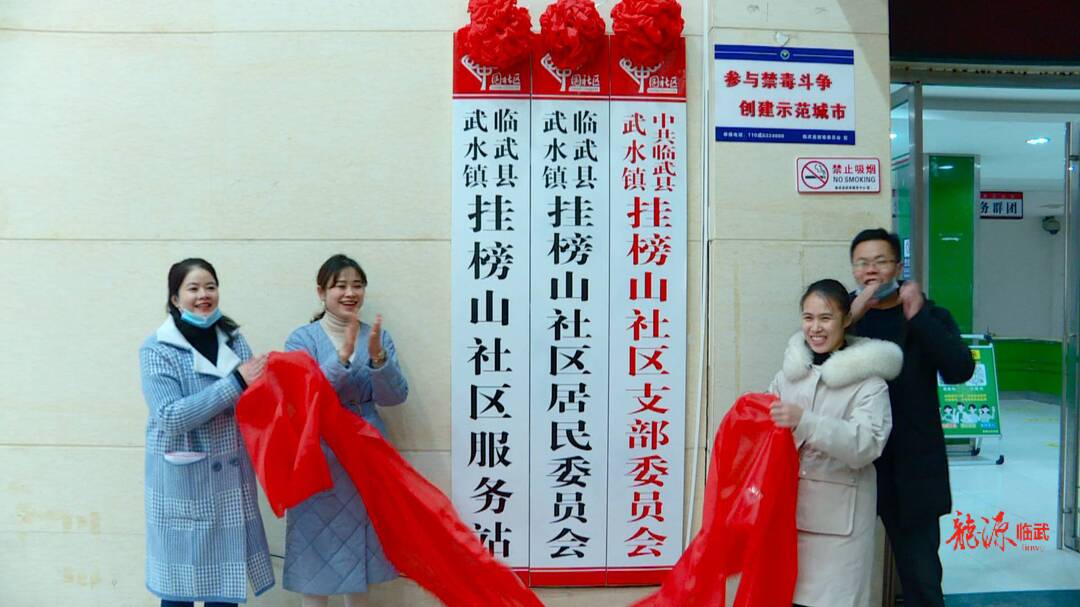 国社区
临武县
武水镇
挂榜山社区服务站
国社区
临武县
武水镇
挂榜山社区居民委员会
国社区
中共临武县
武水镇
挂榜山社区支部委员会
参与禁毒斗争
创建示范城市
禁止吸烟
NO SMOKING
务群团
龍源临武